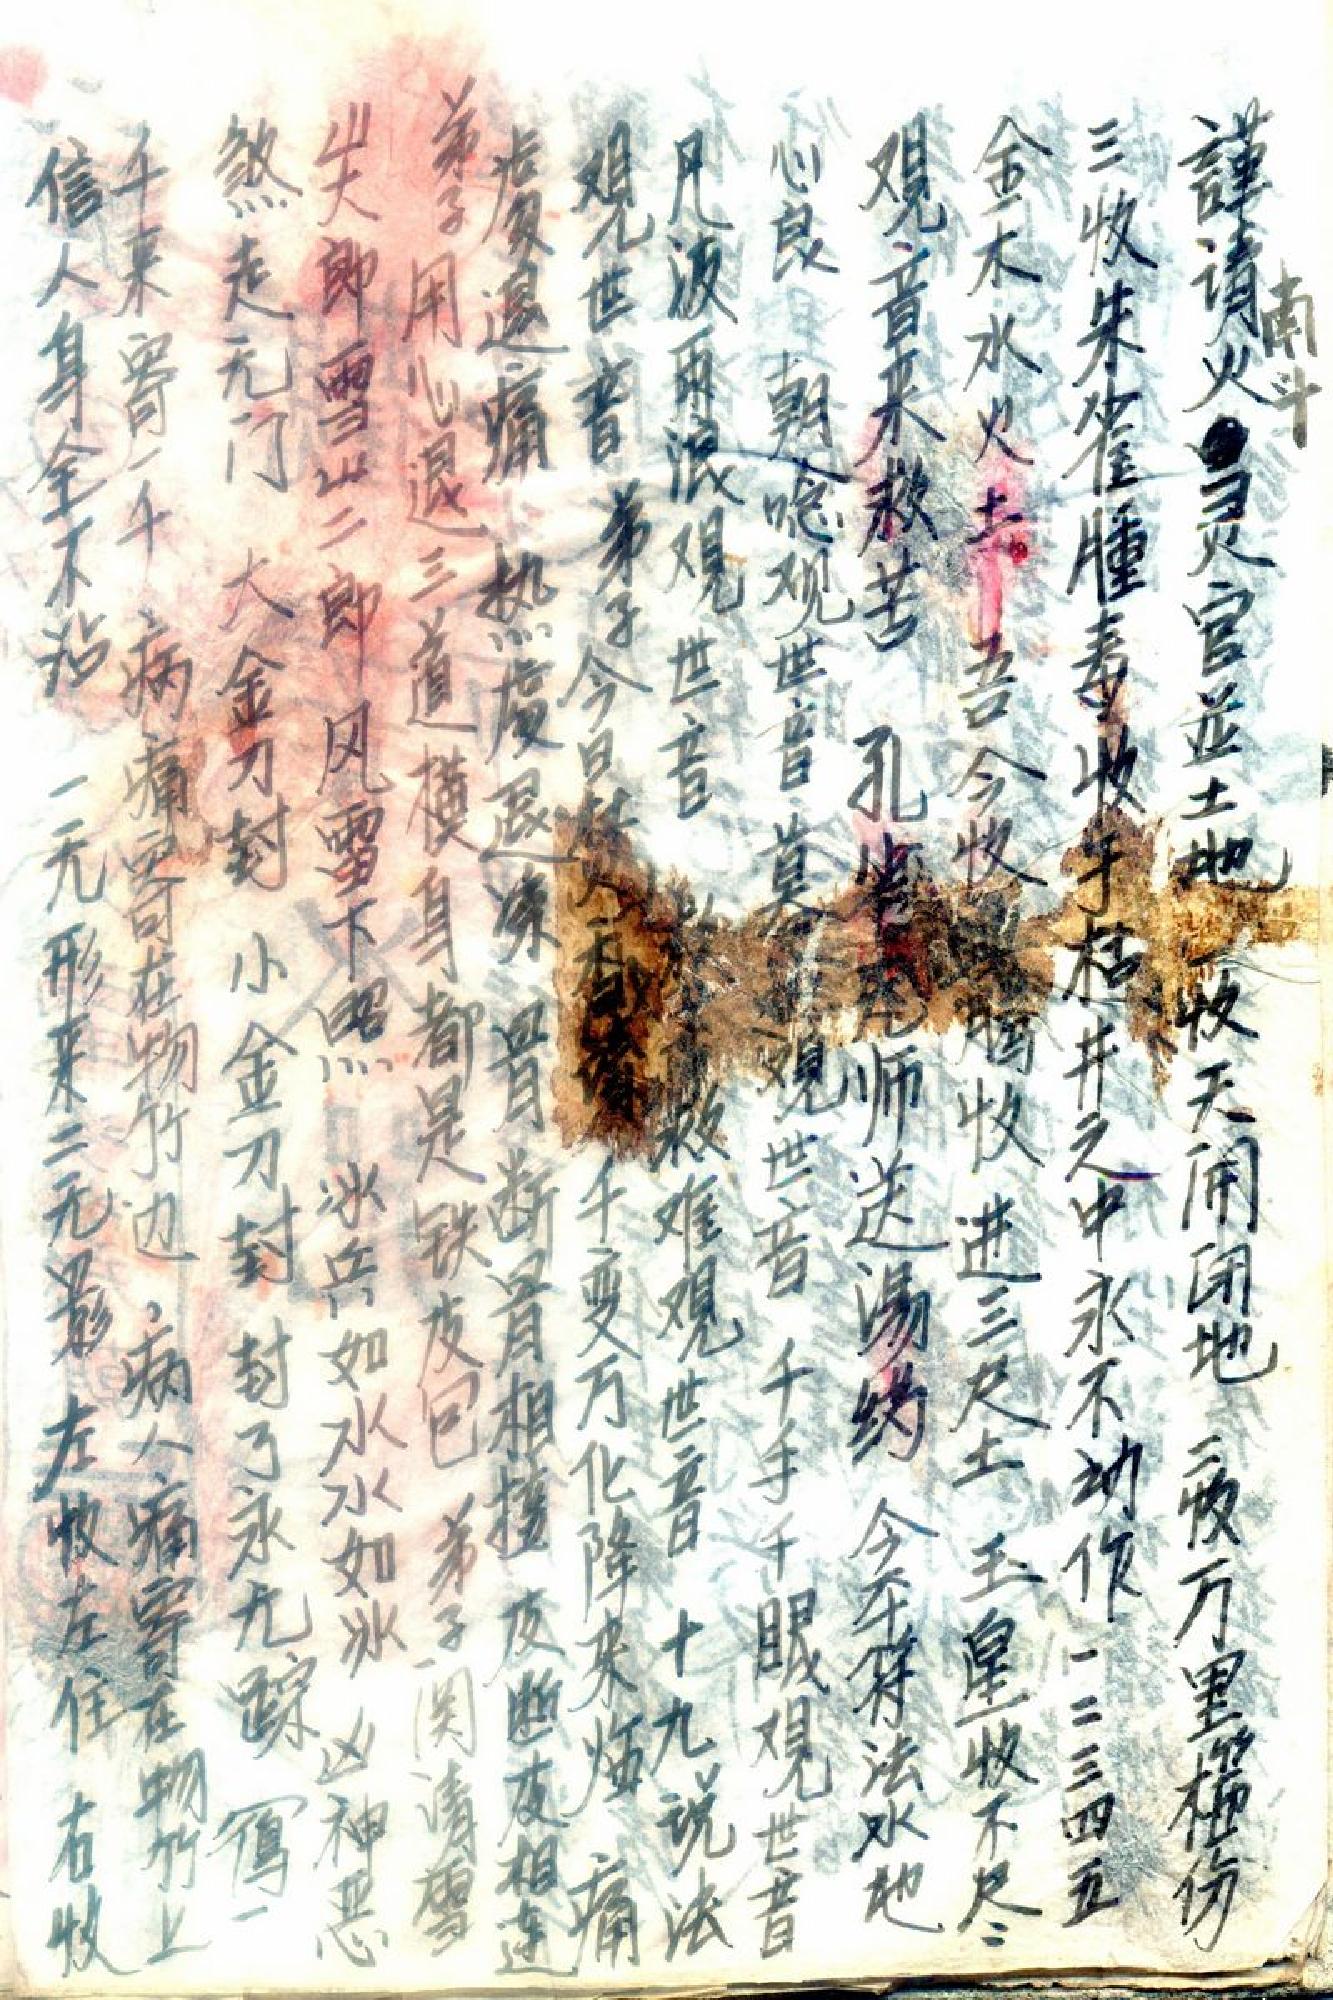 謹请火灵官並土地 一收天闹闭地 二收万里瘟伤
南斗
三收朱雀腫毒 收于枯井之中永不动作 一二三四五
金木水火土 吾今收 收 进三尺土 玉皇收不尽
观音来救苦 孔 师送湯药 今奉符法水地
心良 朝念观世音 莫 观世音 千手千眼观世音
凡波兩浪观世音 救难观世音 十九说法
观世音 弟子今日 千变万化降来 痛
處退痛 热處退凉 骨断骨相接 皮断皮相连
弟子用心退三道 横身都是铁皮包 弟子一関请雪
山大郎雪山二郎 风雪下照 冰兵如水水如冰 凶神恶
煞走无门 大金刀封 小金刀封 封了永无踪 寄一
千来寄一千 病痛寄在物竹边,病人痛寄在物竹上
信人身全不沾 一无形来二无影 左收左住 右收